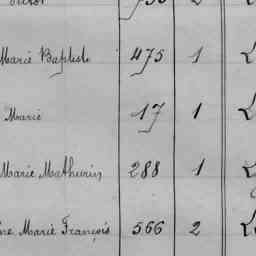 Marie Baptiste 475 1
Marie 17 1
Marie Mathurin 288 1
Marie François 566 2